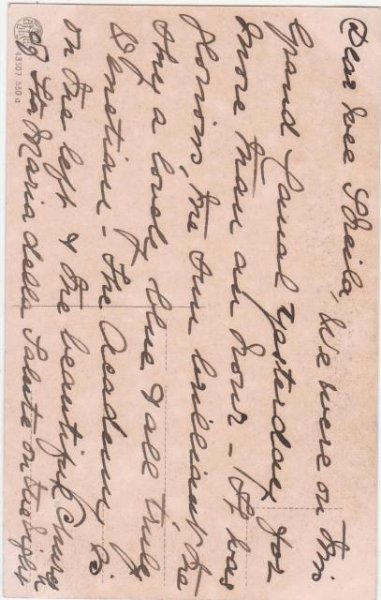 Dear wee Sheila, We were on this
Grand Canal yesterday for
more than an hour - It was
glorious, the sun brilliant the
sky a lovely blue & all truly
Venetian - The Academy is
on the left & the beautiful Church
of Sta Maria della Salute on the right